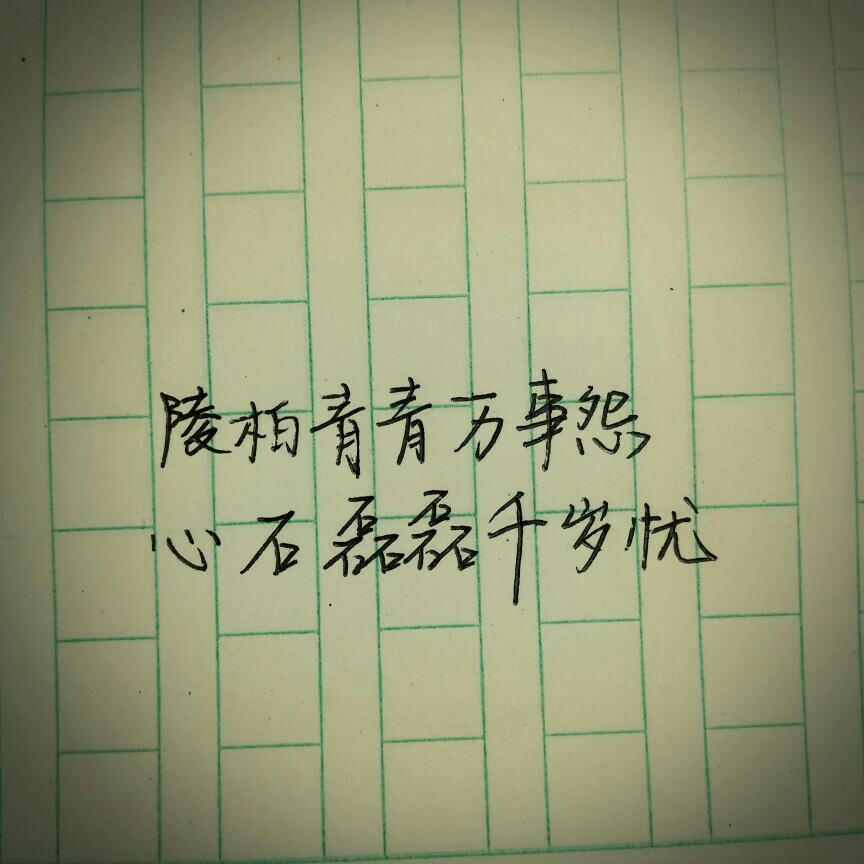 陵柏青青万事怨
心石磊磊千岁忧